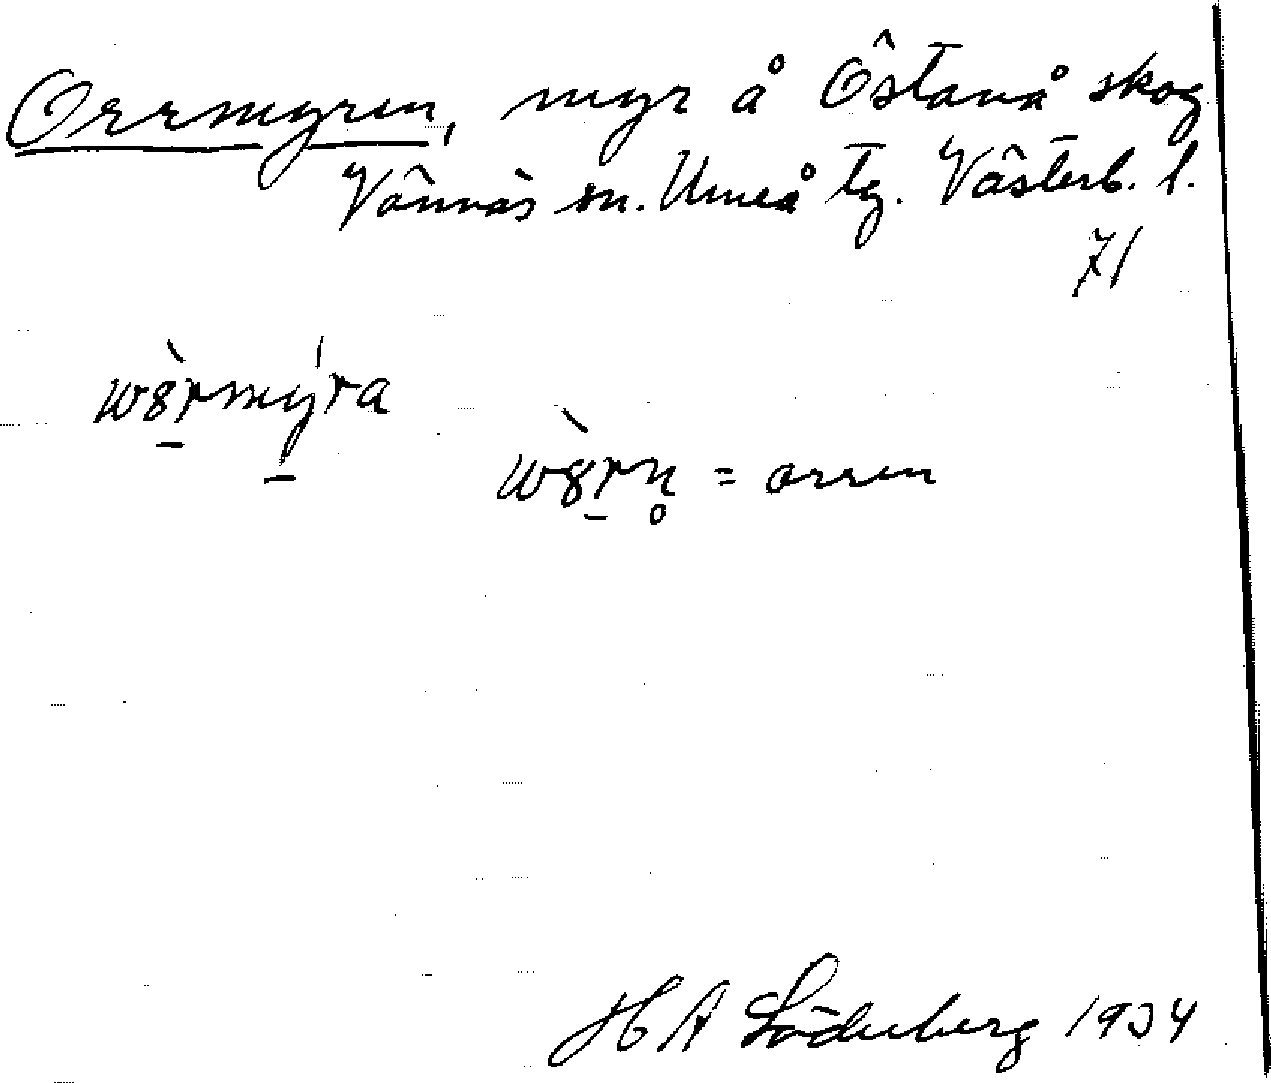 Orrmyren, myr å Östanå skog
Vännäs sn. Umeå tg. Västerb. l.
71
wȣ̀rmy̍ra
wȣ̀rn̥ = orren
H A Söderberg 1934